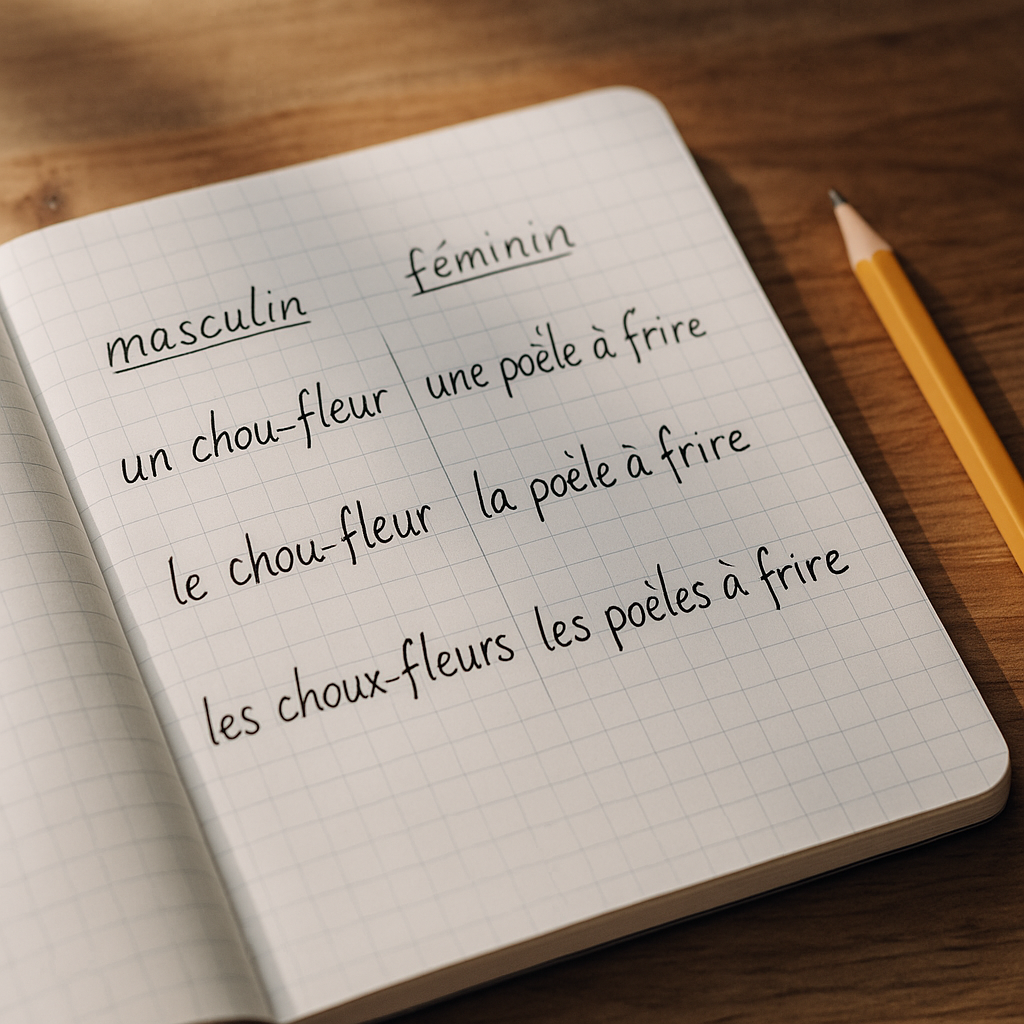 masculin féminin
un chou-fleur une poële à frire
le chou-fleur la poèle à frire
les choux-fleurs les poèles à frire